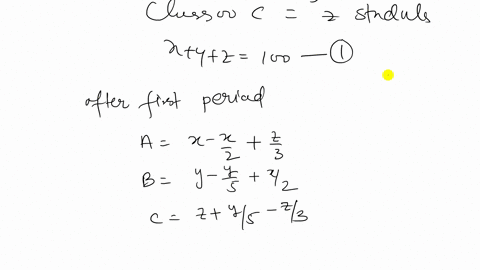 Classroom C = z students
x+y+z = 100 — ①
after first period
A = x - x/2 + z/3
B = y - y/5 + x/2
C = z + y/5 - z/3